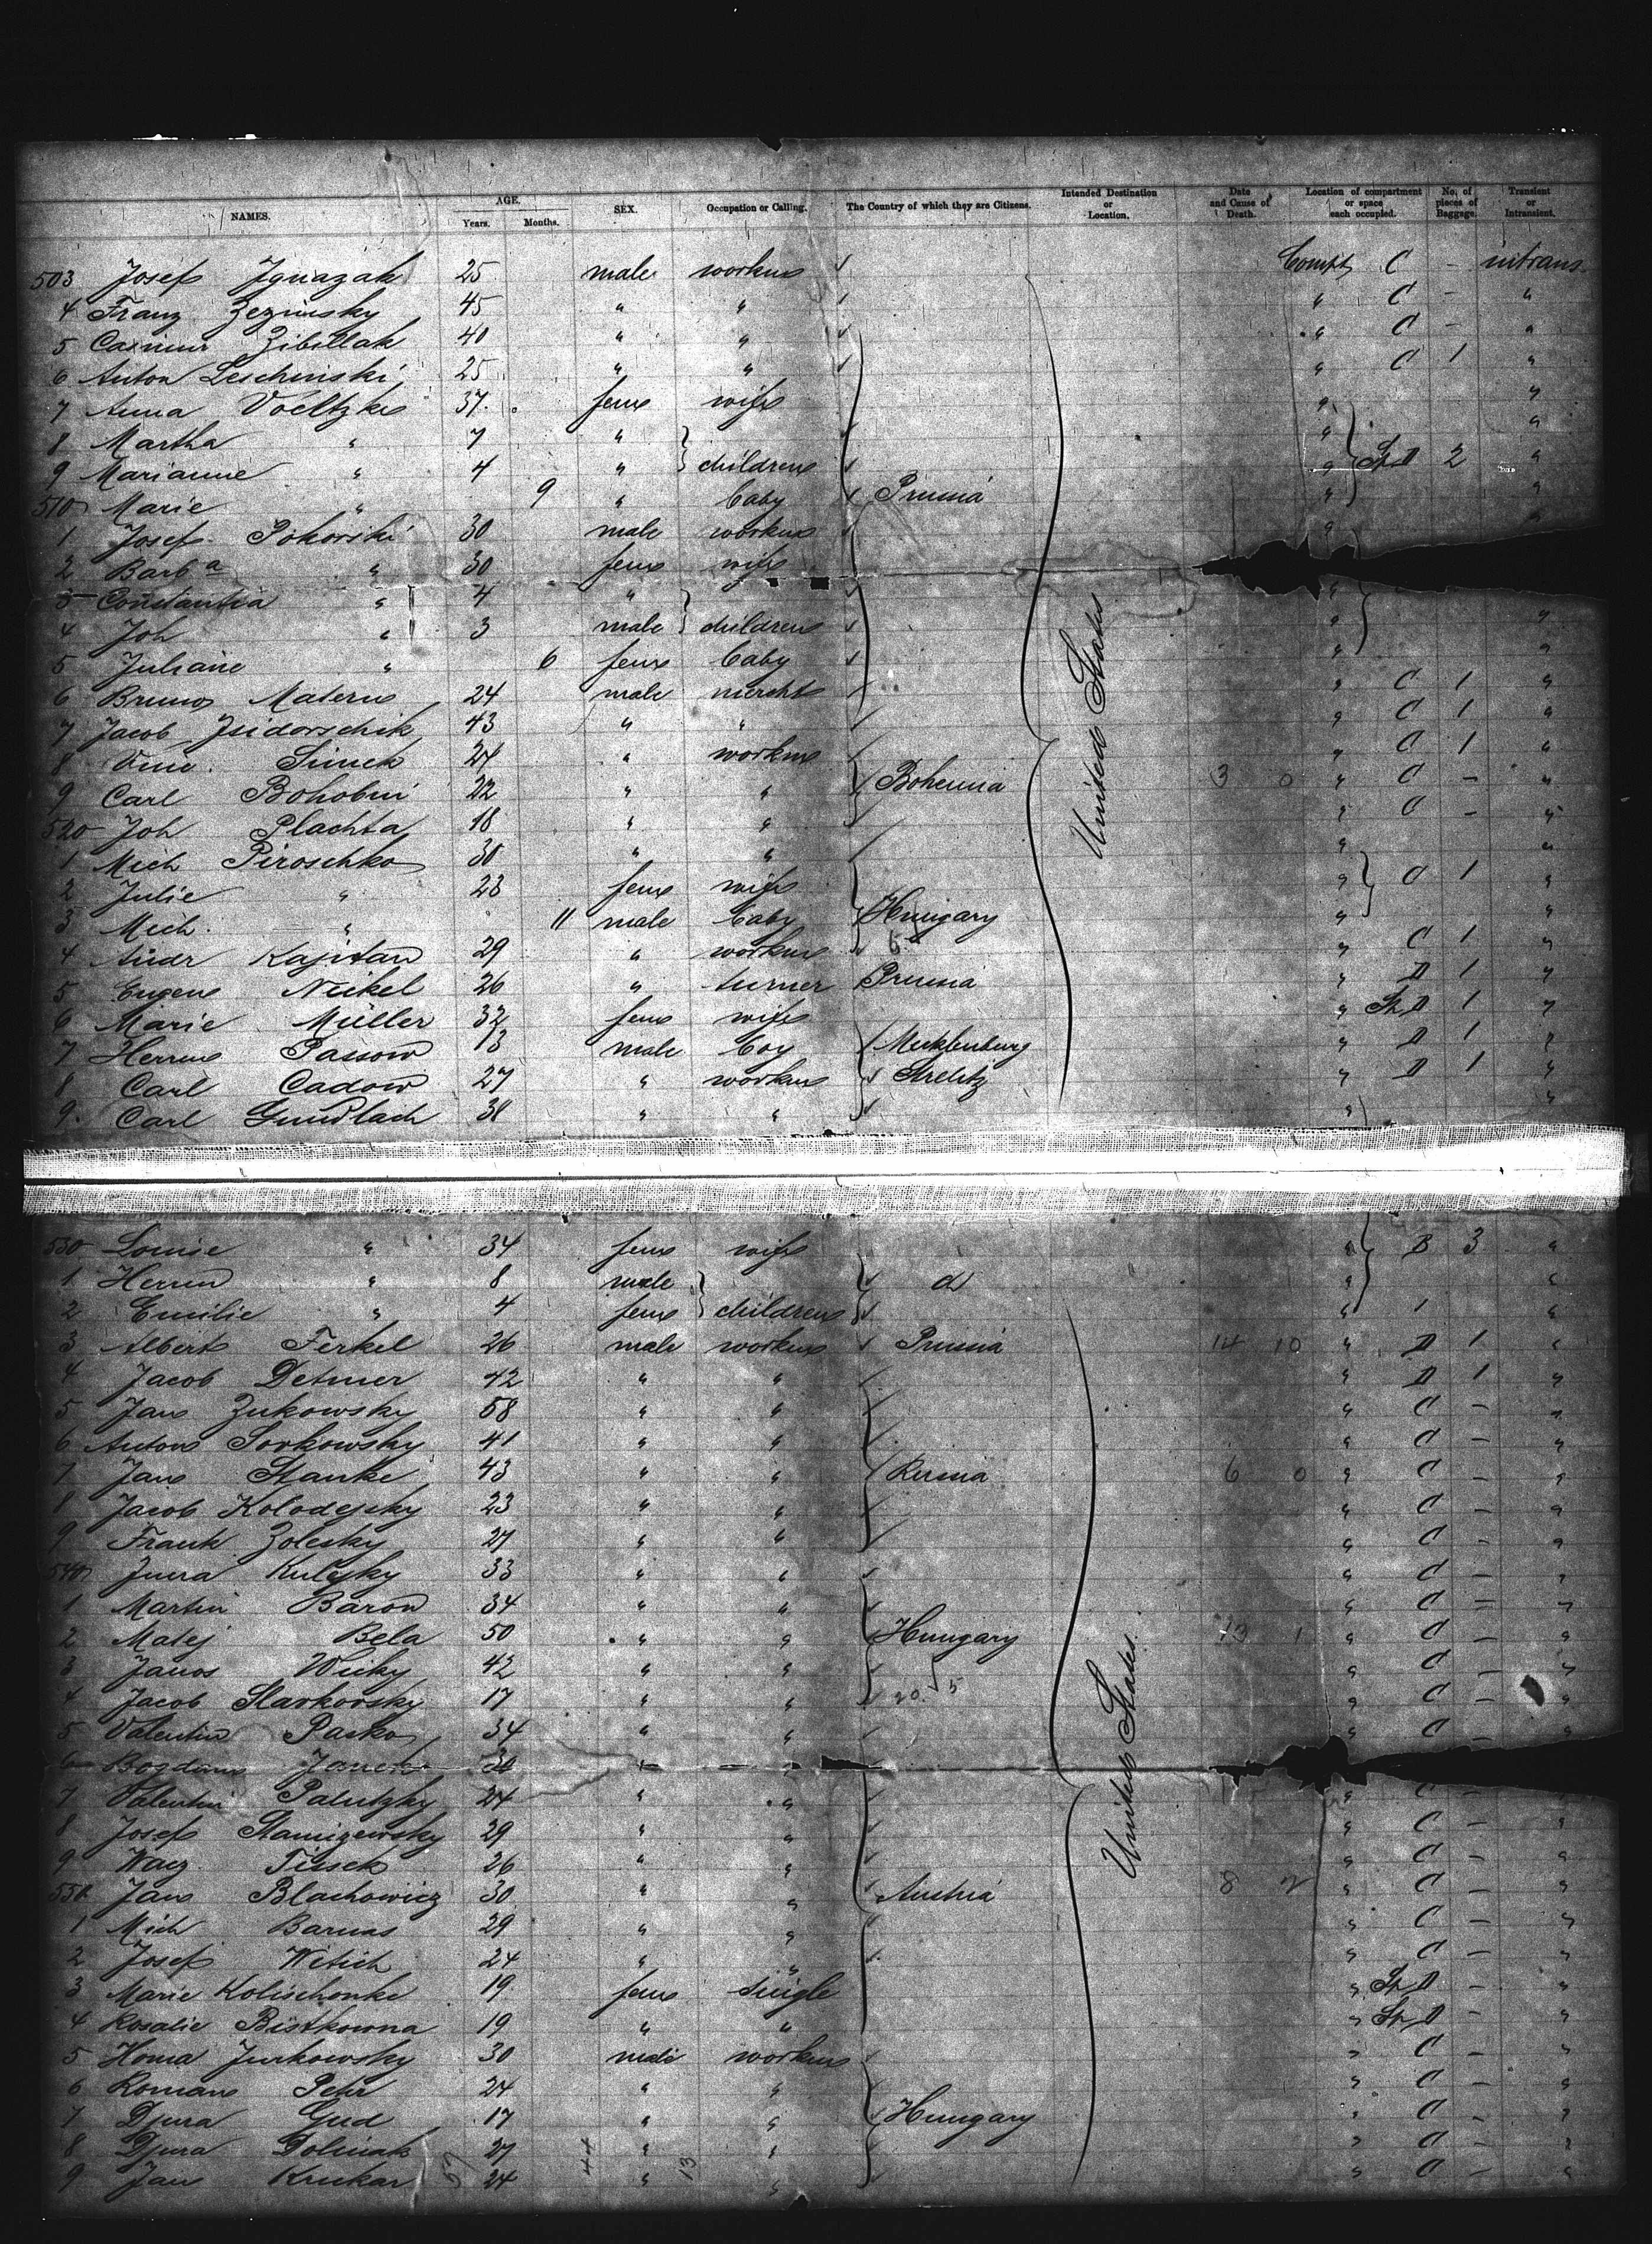 NAMES. AGE. Years. Months. SEX. Occupation or Calling. The Country of which they are Citizens. Intended Destination or Location. Date and Cause of Death. Location of compartment or space each occupied. No. of pieces of Baggage. Transient or Intransient.
503 Josef Ignazak 25 male worker Compt C - intrans
4 Franz 45 " " " C - "
5 Casimir Zibillak 40 " " " C - "
6 Anton Leschinski 25 " " " C 1 "
7 Anna Voeltzke 37 fem wife " "
8 Martha " 7 " " "
9 Marianne " 4 " children " St D 2 "
510 Marie " 9 " baby Prussia " "
1 Josef Pokorski 30 male worker " "
2 Barba " 30 fem wife
3 Constantia " 4 " "
4 Joh " 3 male children " "
5 Juliane " 6 fem baby " "
6 Bruno Materne 24 male mercht " C 1 "
7 Jacob Isidorschik 43 " " " C 1 "
8 Simek 24 " worker " C 1 "
9 Carl 22 " " Bohemia 3 0 " C - "
520 Joh Plachta 18 " " " C - "
1 Mich Piroschko 30 " " " "
2 Julie " 23 fem wife " C 1 "
3 Mich. " 11 male baby Hungary " "
4 Andr Kapitan 29 " worker " C 1 "
5 Eugene Nickel 26 " turner Prussia " D 1 "
6 Marie Müller 32 fem wife " St D 1 "
7 Herrm Passow 13 male boy Mecklenburg " D 1 "
8 Carl Cadow 27 " worker Strelitz " D 1 "
9. Carl Gundlach 38 " " " "
United States
530 Louise " 34 fem wife " B 3 "
1 Herrm " 8 male do " "
2 Emilie " 4 fem children " "
3 Albert Ferkel 26 male worker Prussia 14 10 " D 1 "
4 Jacob Detmer 42 " " " D 1 "
5 Jan Zukowsky 58 " " " C - "
6 Anton Sorkowsky 41 " " " C - "
7 Jan Stanke 43 " " Russia 6 0 " C - "
8 Jacob Kolodejsky 23 " " " C - "
9 Frank Zolesky 27 " " " C - "
540 Jura 33 " " " C - "
1 Martin Baron 34 " " " C - "
2 Matej Bela 50 " " Hungary 13 1 " C - "
3 Janos Wicky 42 " " " C - "
4 Jacob Starkovsky 17 " " " C - "
5 Valentin Pasko 34 " " " C - "
6 Bogdan 30 " "
7 Valentin Palutzky 24 " " " C - "
8 Josef 29 " " " C - "
9 Tissek 26 " " " C - "
550 Jan Blachowicz 30 " " Austria 8 2 " C - "
1 Mich Barnas 29 " " " C - "
2 Josef Witich 24 " " " C - "
3 Marie Kolischonke 19 fem single " St D - "
4 Rosalie Bistkowna 19 " " " St D - "
5 Homa Jurkowsky 30 male worker " C - "
6 Roman Petr 24 " " " C - "
7 Djura Gud 17 " " Hungary " C - "
8 Djura Doliniak 27 " " " C - "
9 Jan Krukar 24 " " " C - "
United States.
57 44 13